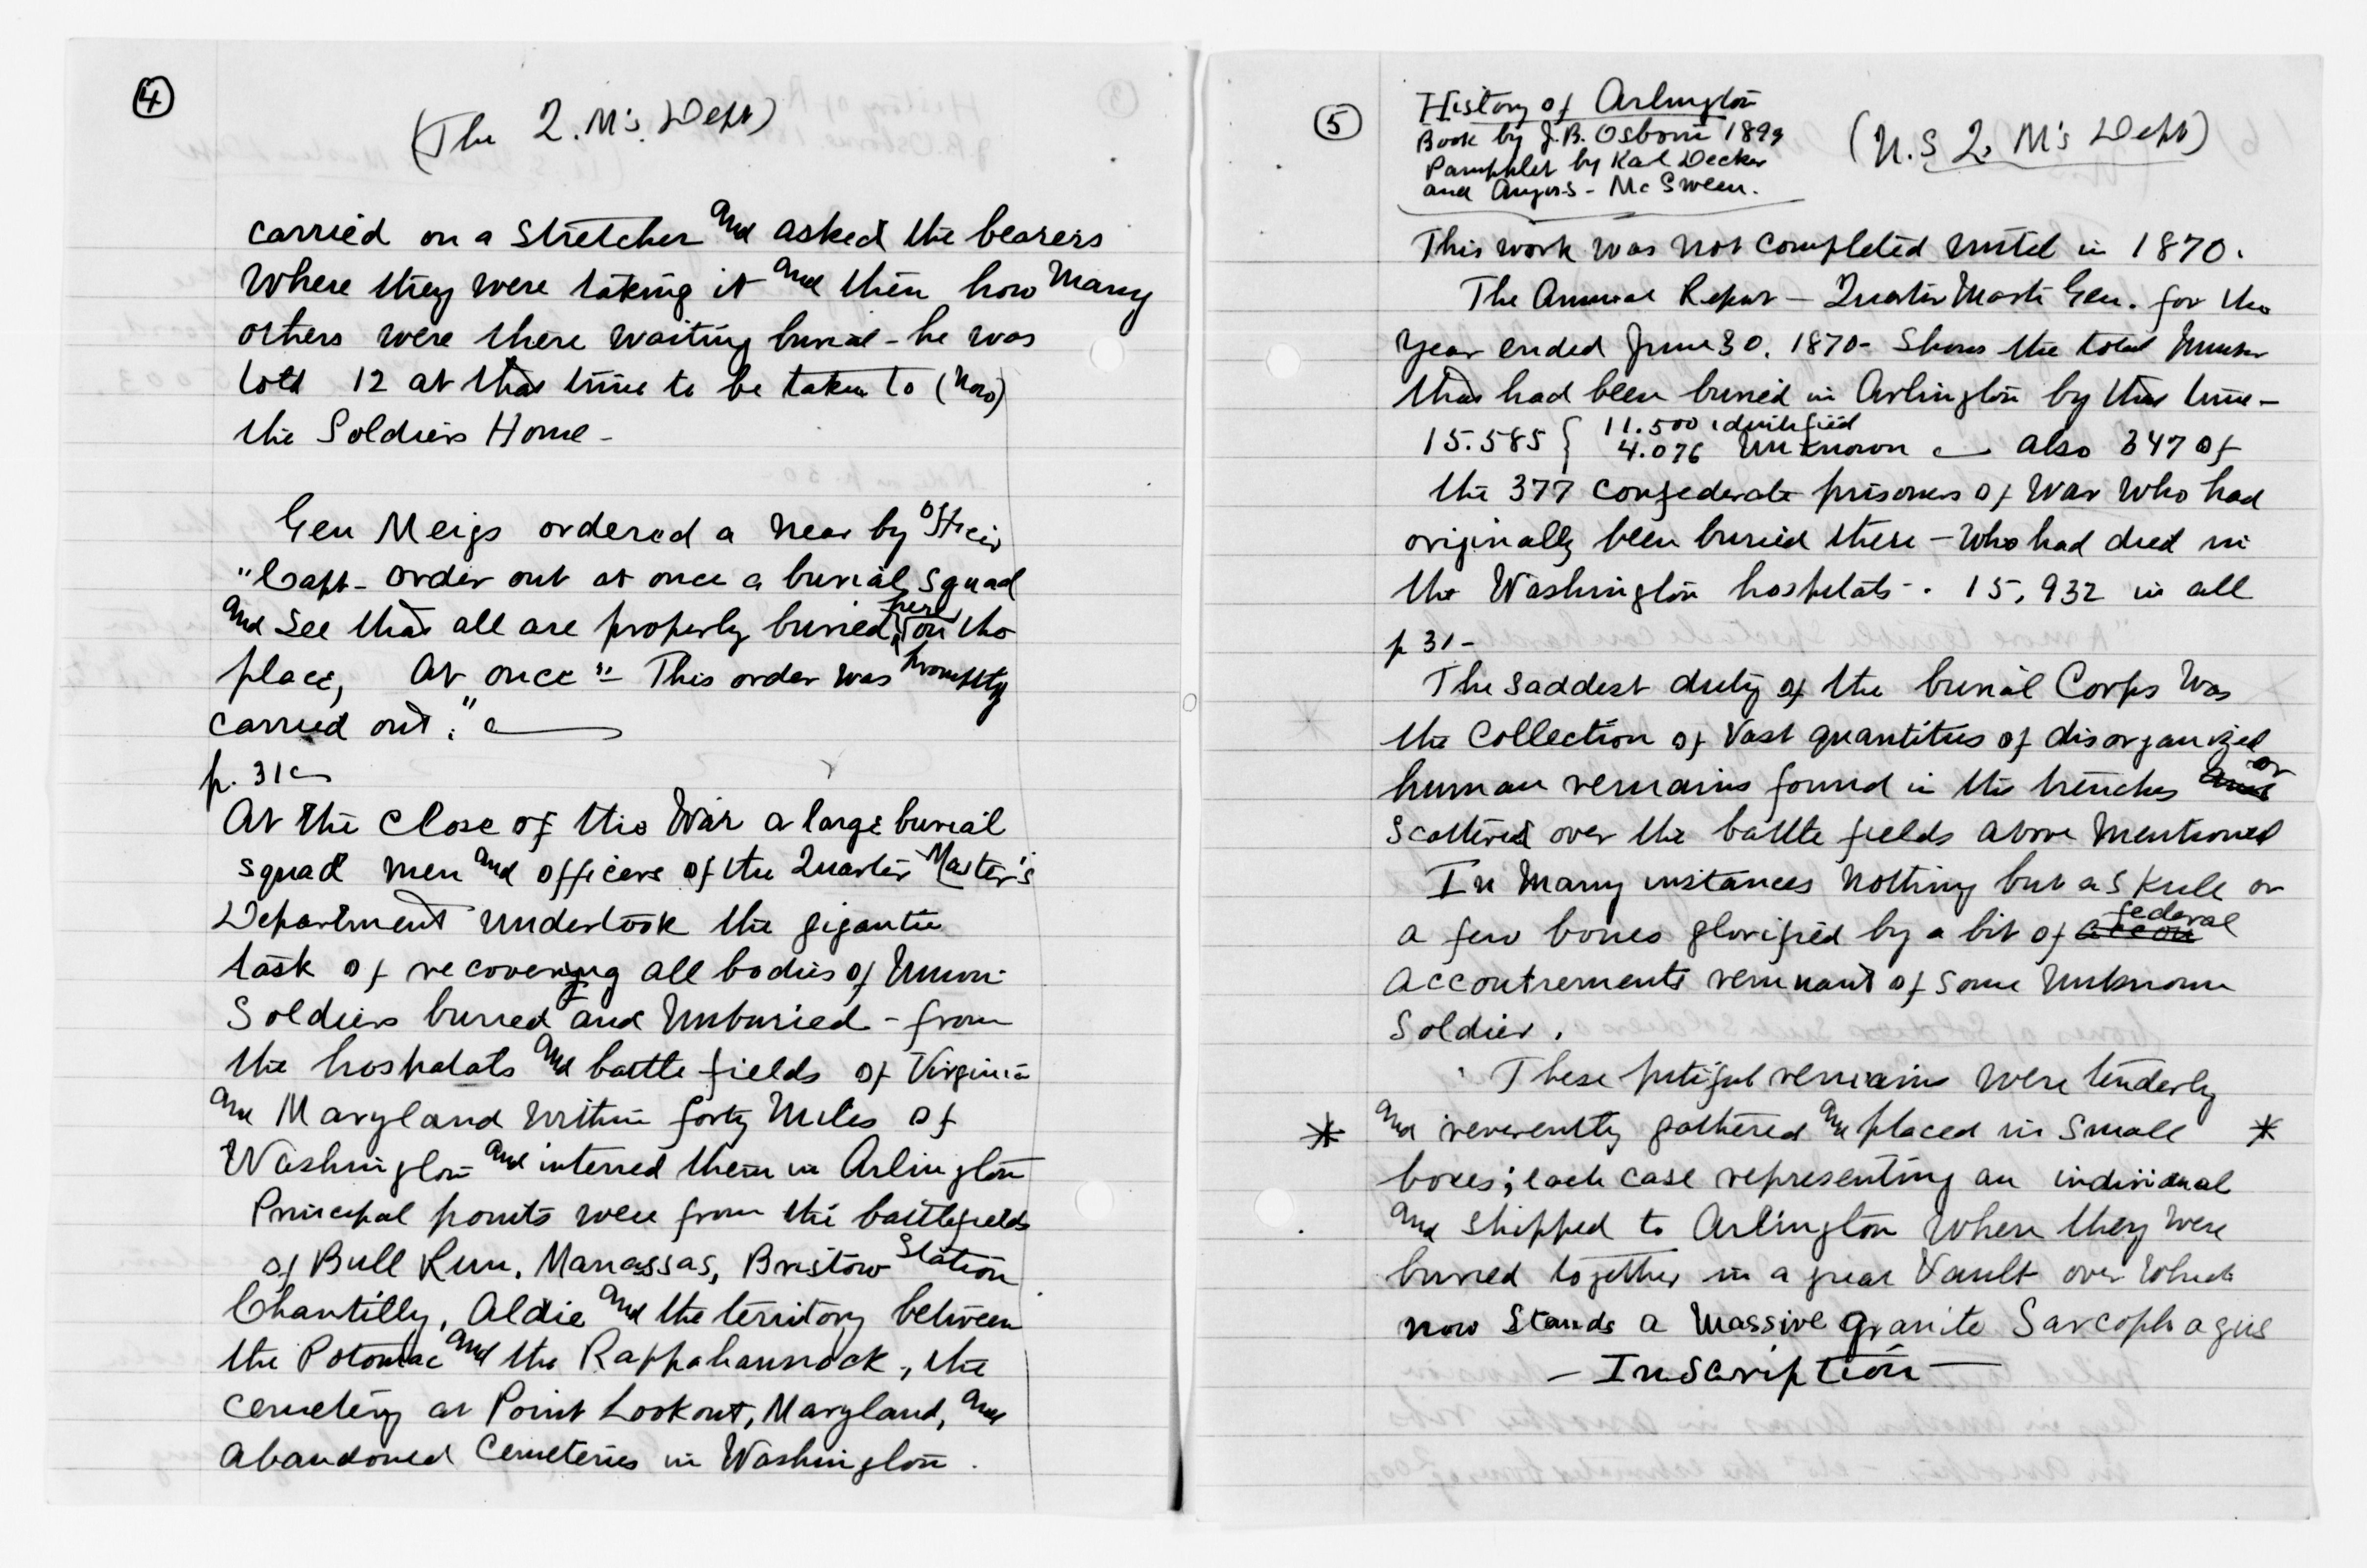 4
(The Q. M's. Dept)
carried on a stretcher and asked the bearers
where they were taking it and then how many
others were there waiting burial - he was
told 12 at that time to be taken to (now)
the Soldiers Home -
Gen Meigs ordered a near by officer
"Capt - order out at once a burial squad
and see that all are properly buried, here on the
place, at once" - This order was promptly
carried out."
p. 31
At the close of the War a large burial
squad men and officers of the Quarter Master's
Department undertook the gigantic
task of recovering all bodies of Union
Soldiers buried and unburied - from
the hospitals and battle fields of Virginia
and Maryland within forty miles of
Washington and interred them in Arlington
Principal points were from the battlefields
of Bull Run, Manassas, Bristow Station
Chantilly, Aldie and the territory between
the Potomac and the Rappahannock, the
cemetery at Point Lookout, Maryland, and
abandoned cemeteries in Washington.
5
History of Arlington
Book by J.B. Osborn 1899
Pamphlet by Karl Decker
and Angus - McSween.
(U.S Q. M's Dept)
This work was not completed until in 1870.
The Annual Report - Quarter Mast. Gen. for the
year ended June 30. 1870 - shows the total number
that had been buried in Arlington by that time -
15.585 { 11.500 identified
4.076 Unknown - also 347 of
the 377 confederate prisoners of war who had
originally been buried there - who had died in
the Washington hospitals - . 15,932 in all
p 31 -
The saddest duty of the burial Corps was
the collection of vast quantities of disorganized
human remains found in the trenches and or
scattered over the battle fields above mentioned
In many instances nothing but a skull or
a few bones glorified by a bit of accou federal
accoutrements remnant of some unknown
soldier.
These pitiful remains were tenderly
* and reverently gathered and placed in small *
boxes; each case representing an individual
and shipped to Arlington where they were
buried together in a great Vault over which
now stands a massive granite Sarcophagus
- Inscription -